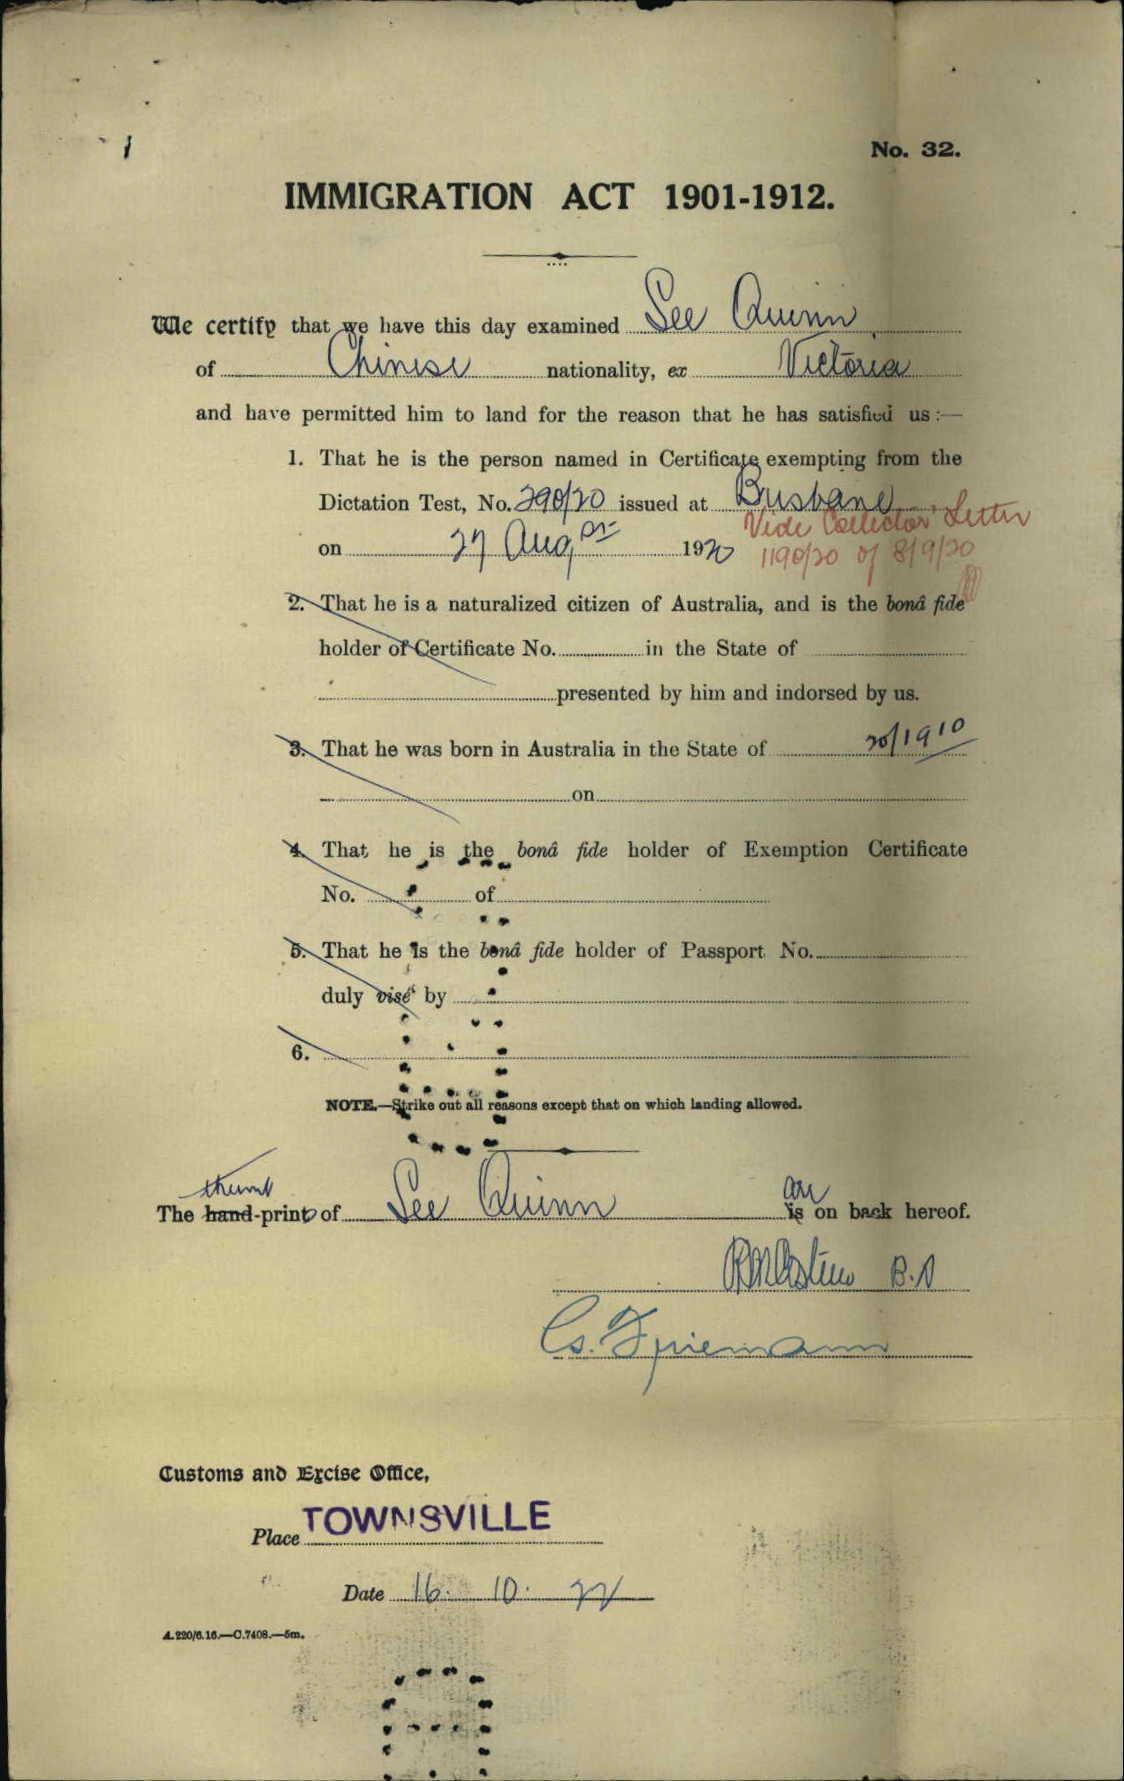 No. 32.
IMMIGRATION ACT 1901-1912.
We certify that we have this day examined See Quinn
of Chinese nationality, ex Victoria
and have permitted him to land for the reason that he has satisfied us:—
1. That he is the person named in Certificate exempting from the
Dictation Test, No. 290/20 issued at Brisbane
Vide Collector's Letter
on 27 Augst 1920
1190/20 of 8/9/20
2. That he is a naturalized citizen of Australia, and is the bonâ fide
holder of Certificate No. in the State of
presented by him and indorsed by us.
3. That he was born in Australia in the State of 20/1910
on
4. That he is the bonâ fide holder of Exemption Certificate
No. of
5. That he is the bonâ fide holder of Passport No.
duly visé by
6.
NOTE.—Strike out all reasons except that on which landing allowed.
thumb
are
The hand-prints of See Quinn is on back hereof.
Customs and Excise Office,
Place TOWNSVILLE
Date 16. 10. 22
A.220/6.16.—C.7408.—5m.